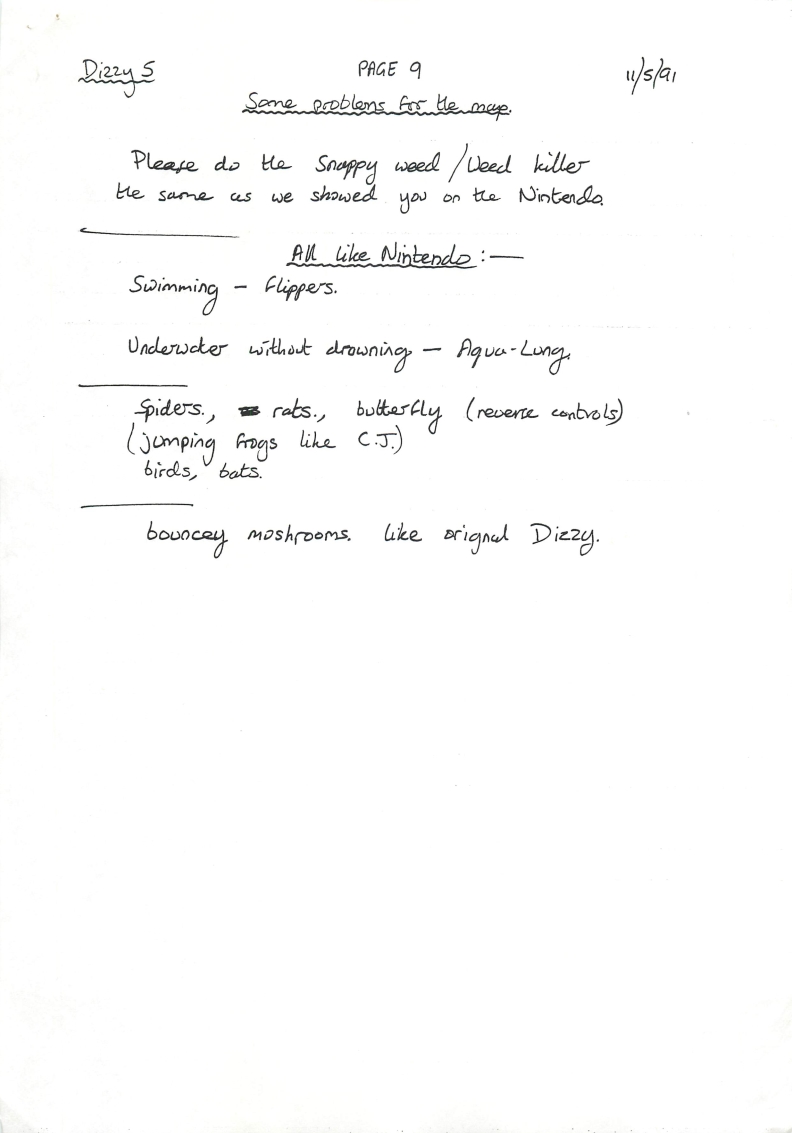 Dizzy 5 PAGE 9 11/5/91
Some problems for the map.
Please do the Snappy weed / Weed killer
the same as we showed you on the Nintendo.
All like Nintendo :—
Swimming – Flippers.
Underwater without drowning – Aqua-Lung.
Spiders., rats., butterfly (reverse controls)
(jumping frogs like C.J.)
birds, bats.
bouncey moshrooms. like orignal Dizzy.